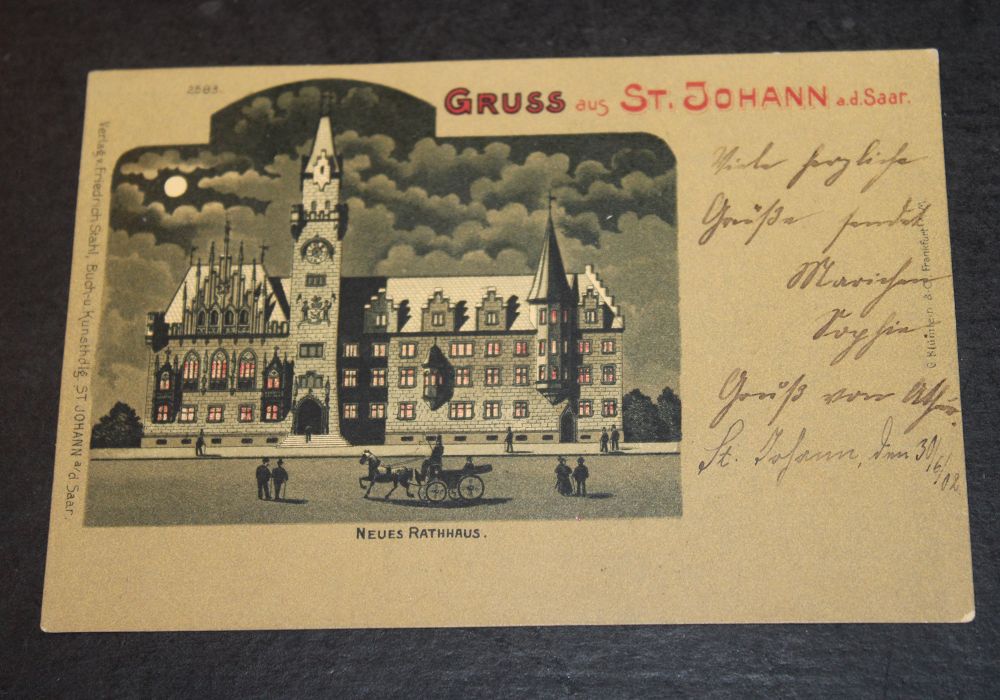 2583.
GRUSS aus ST. JOHANN a.d. Saar.
Viele herzliche
Grüße sendet
Mariechen
Sophie.
Gruß von
St. Johann, den 30/6/02
NEUES RATHHAUS.
Verlag v. Friedrich Stahl, Buch- u. Kunsthdlg. ST JOHANN a/d. Saar.
& Co Frankfurt a. M.